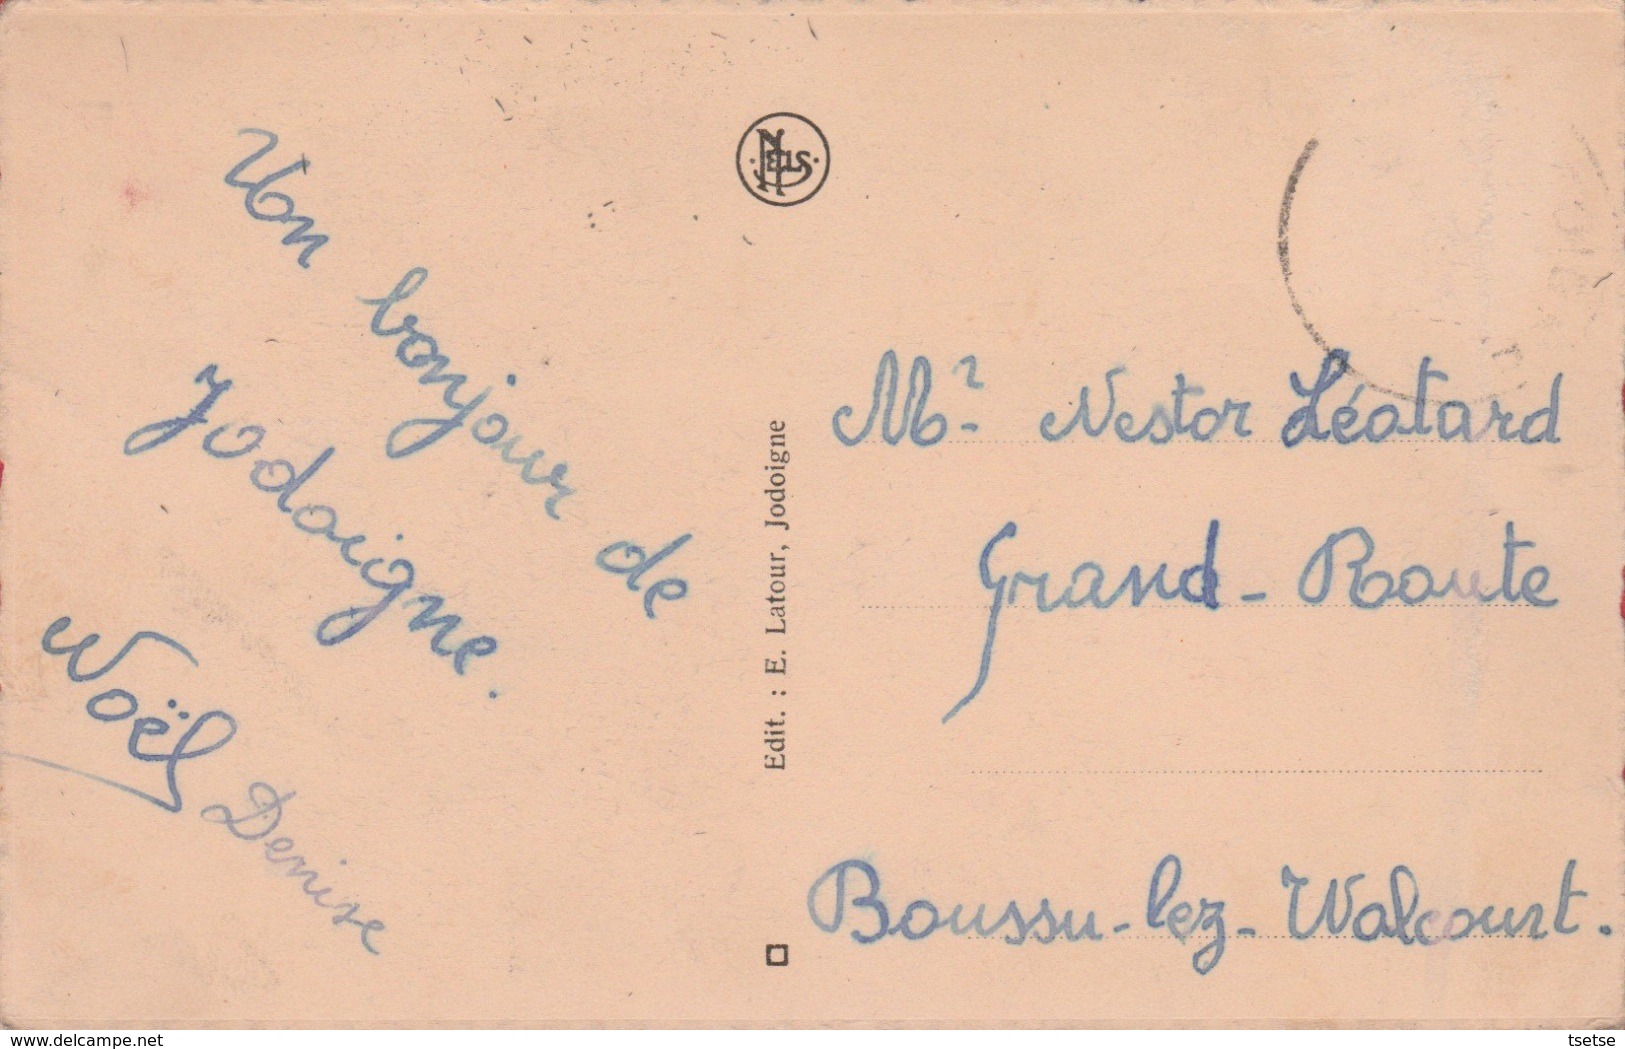 Un bonjour de
Jodoigne.
Noël
Denise
NELS
Edit. : E. Latour, Jodoigne
Mr. Nestor Léotard
Grand-Route
Boussu-lez-Walcourt.
delcampe.net
tsetse